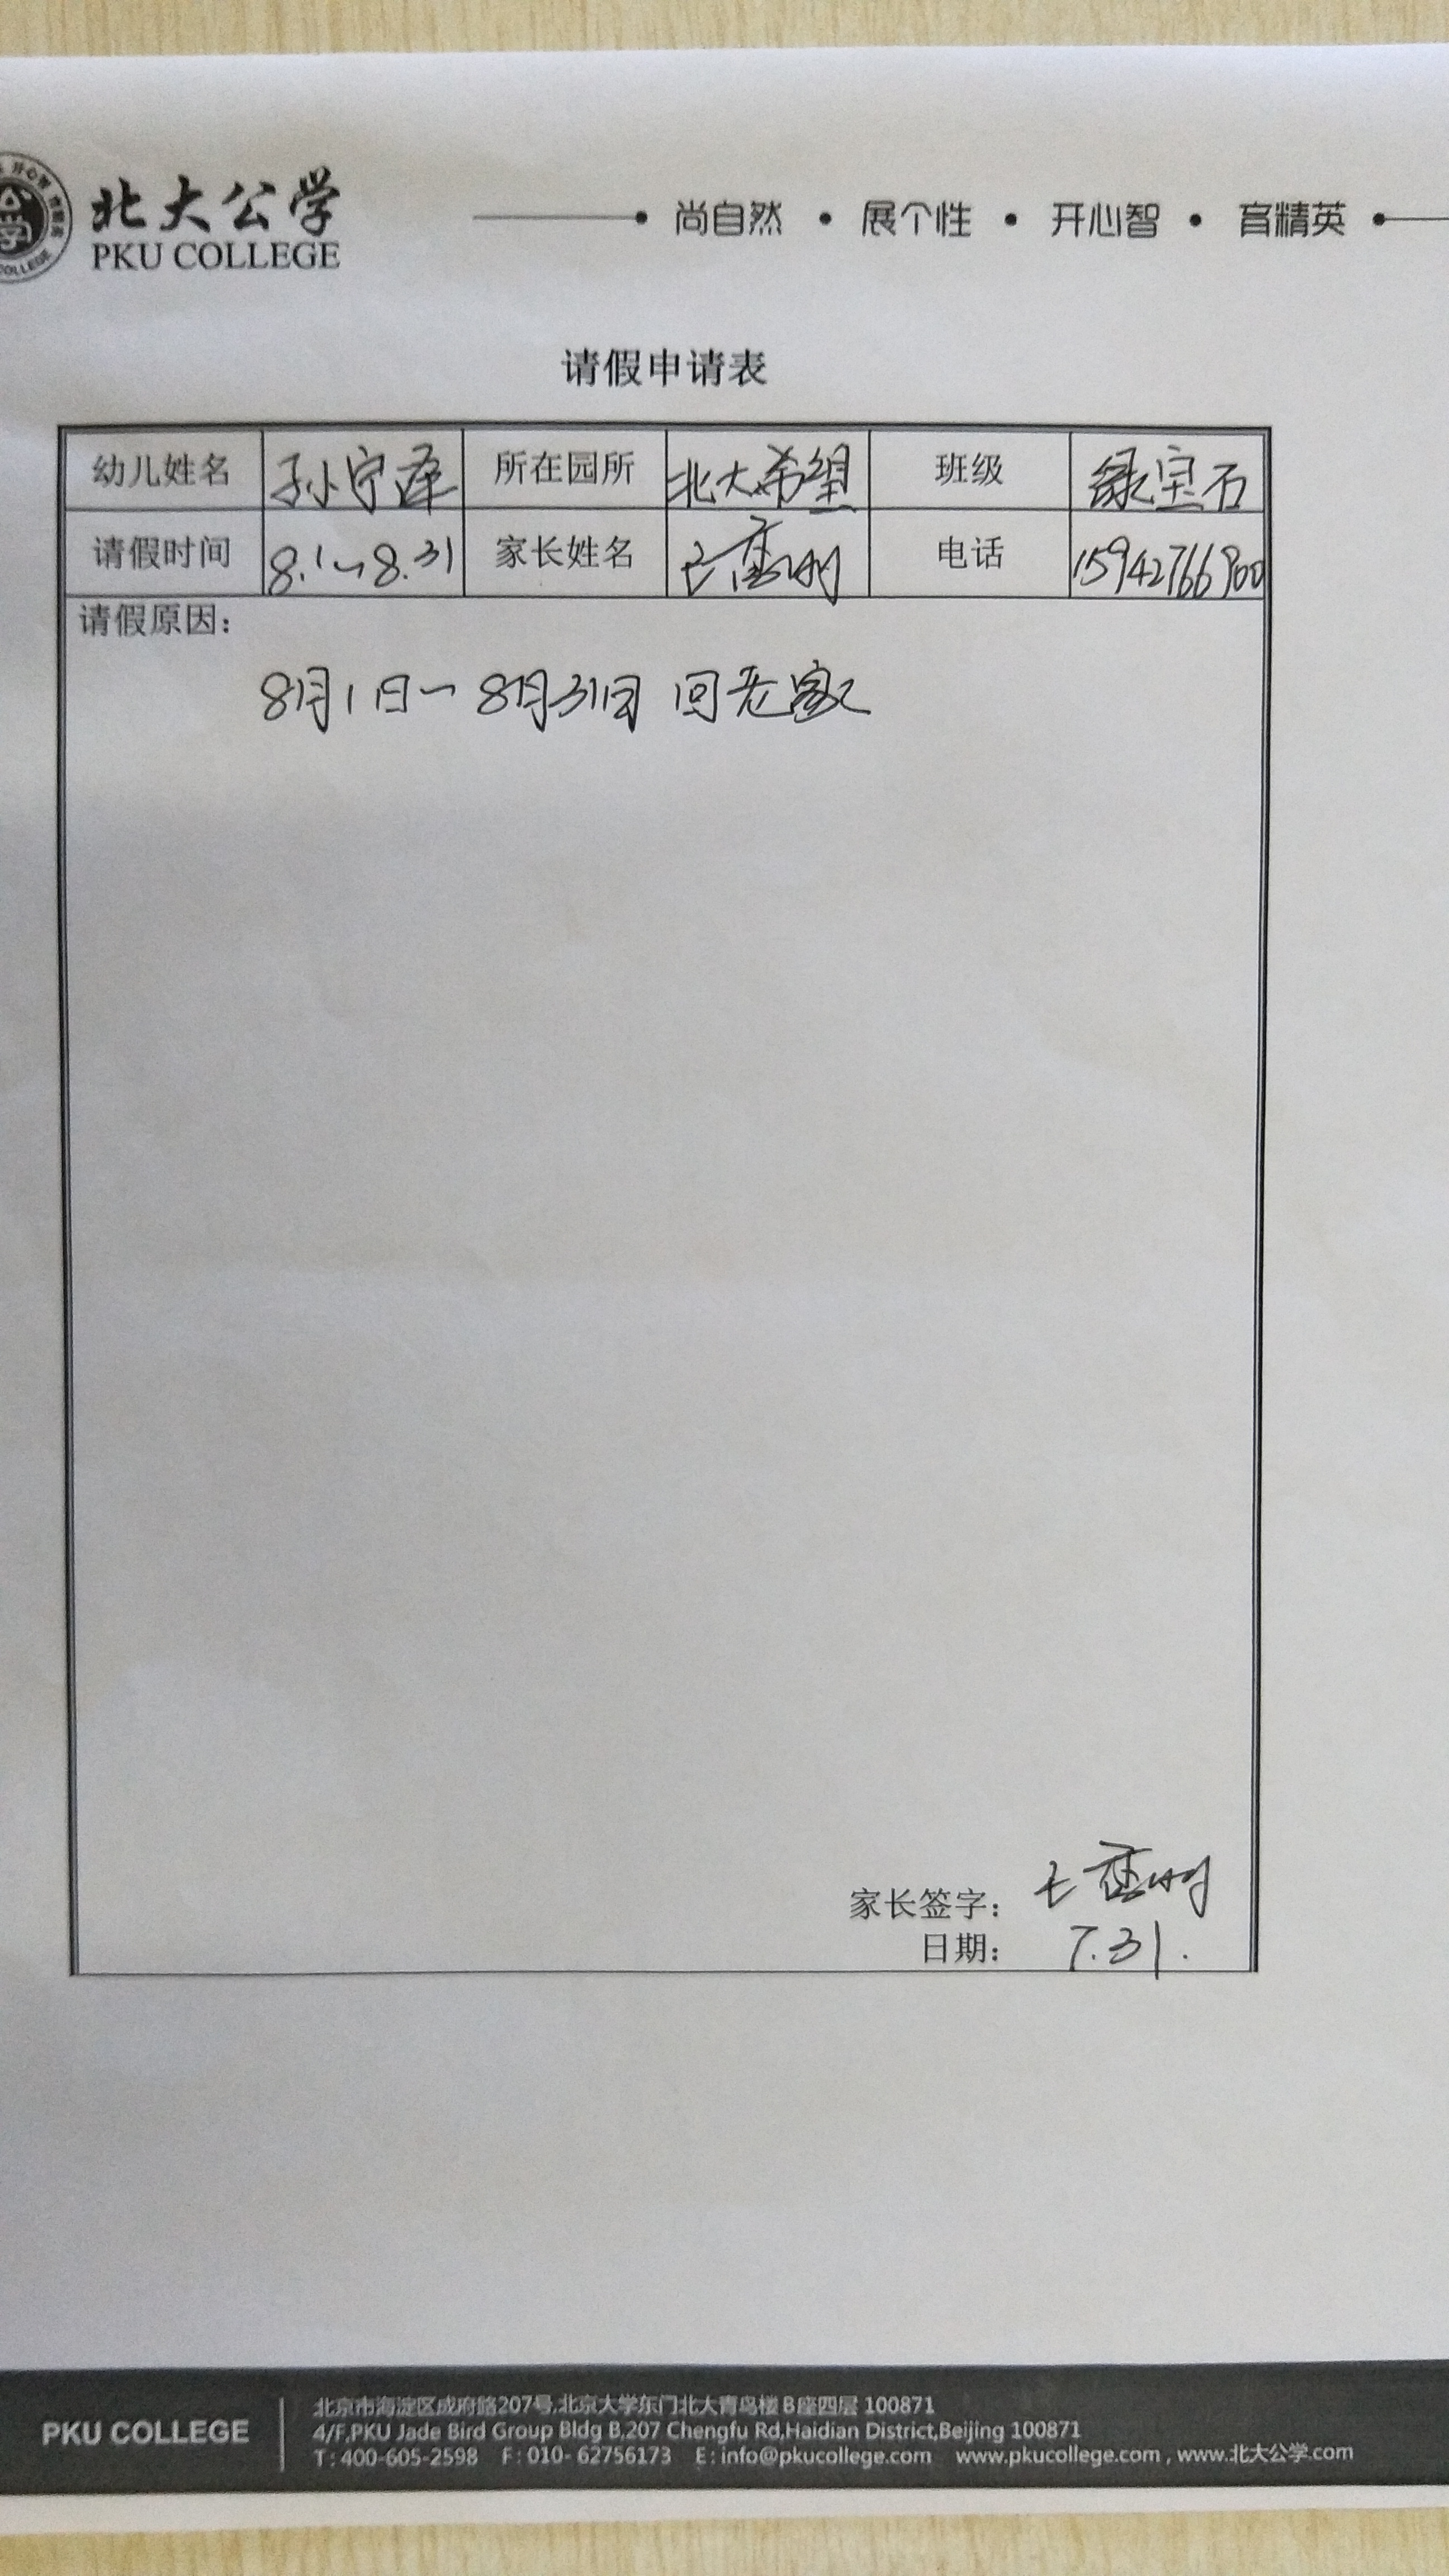 北大公学
PKU COLLEGE
尚自然 • 展个性 • 开心智 • 育精英
请假申请表
幼儿姓名 孙宁泽 所在园所 北大希望 班级 绿宝石
请假时间 8.1~8.31 家长姓名 电话 15942766900
请假原因:
8月1日~8月31日 回老家
家长签字:
日期: 7.31.
PKU COLLEGE
北京市海淀区成府路207号,北京大学东门北大青鸟楼B座四层 100871
4/F,PKU Jade Bird Group Bldg B,207 Chengfu Rd,Haidian District,Beijing 100871
T:400-605-2598 F:010-62756173 E:info@pkucollege.com www.pkucollege.com , www.北大公学.com